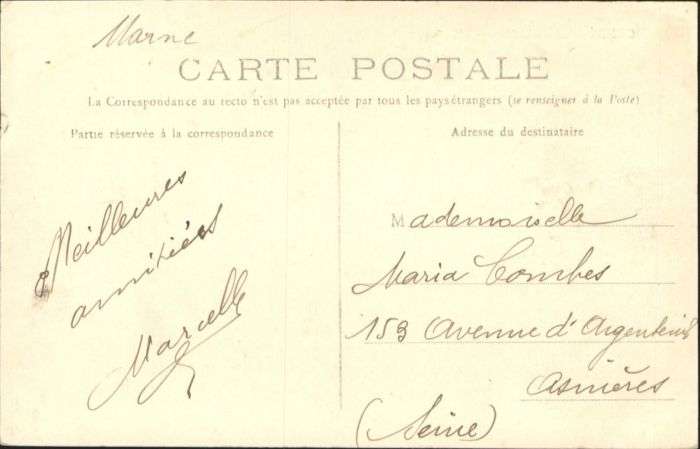 Marne
CARTE POSTALE
La Correspondance au recto n'est pas acceptée par tous les pays étrangers (se renseigner à la Poste)
Partie réservée à la correspondance
Adresse du destinataire
Meilleures
amitiées
Marcelle
Mademoiselle
Maria Combes
153 Avenue d'Argenteuil
Asnières
(Seine)